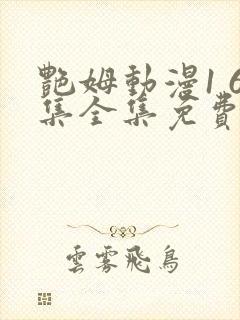 艷姆動漫1 6
集全集免費
雲霧飛鳥